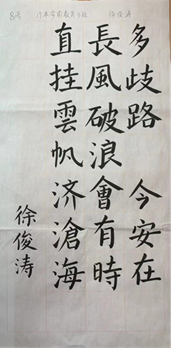 多歧路 今安在
長風破浪會有時
直挂雲帆济滄海
徐俊涛